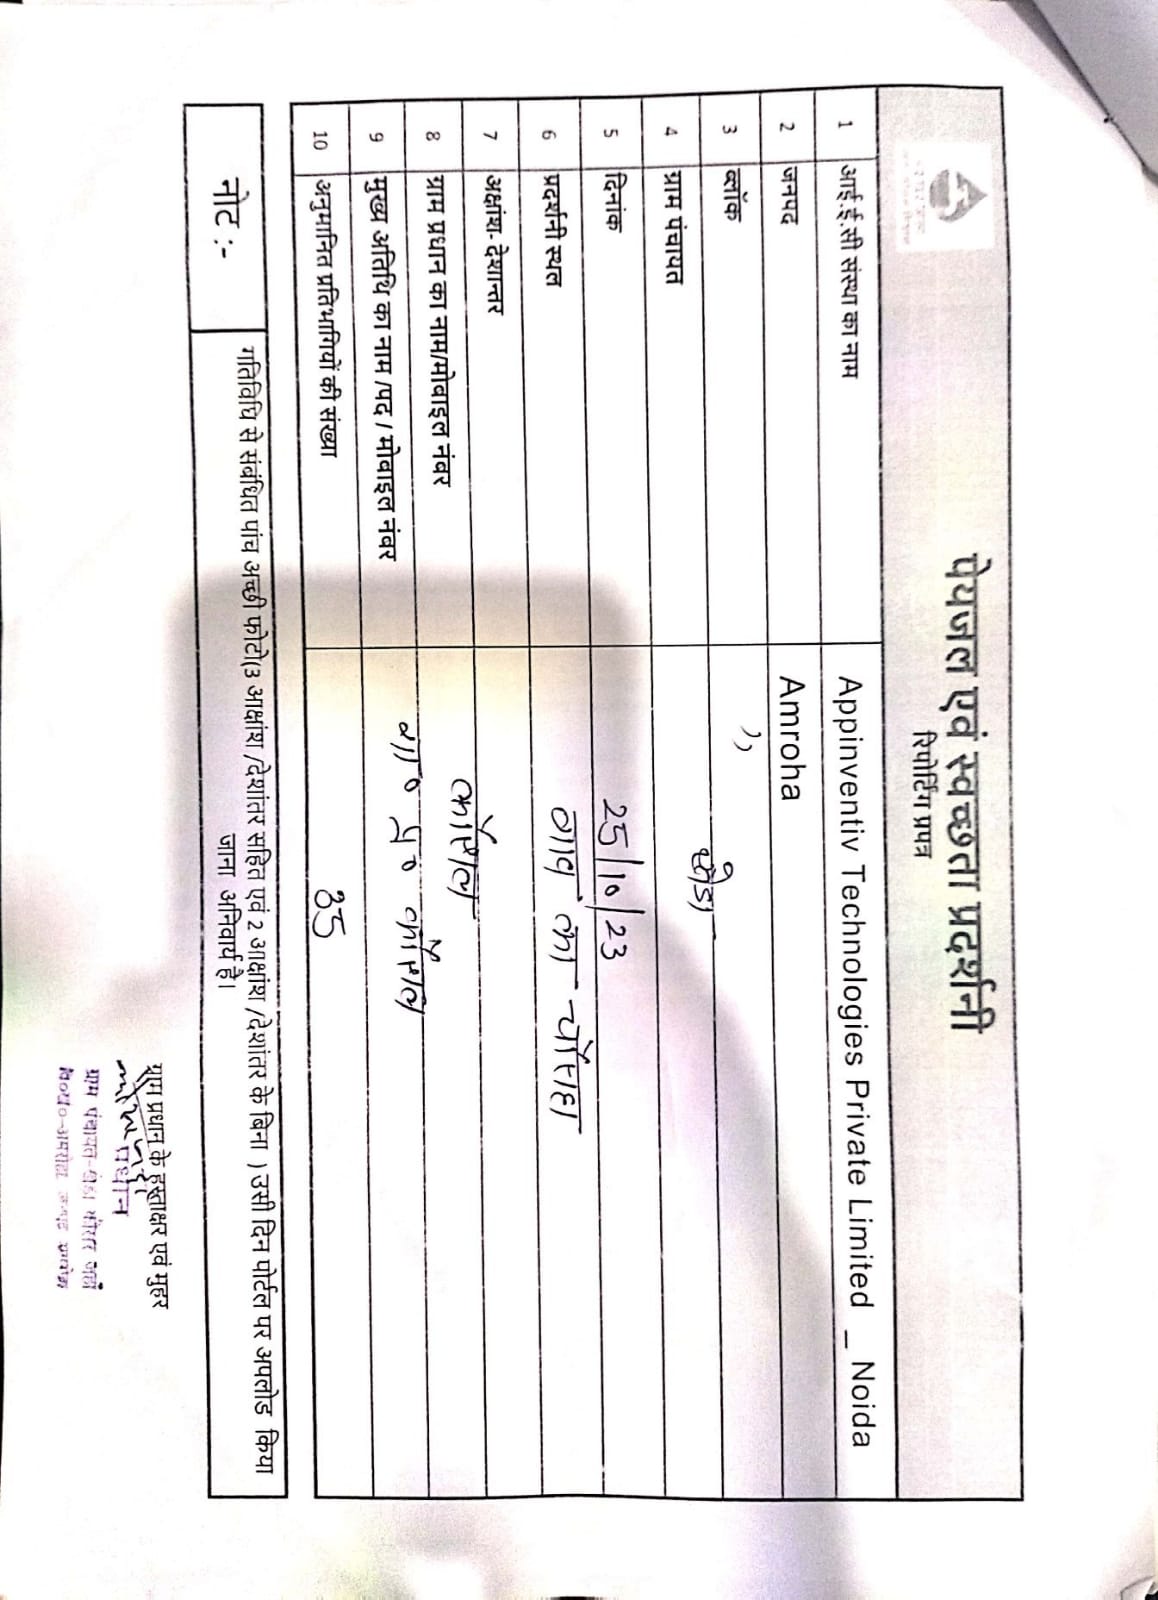 पेयजल एवं स्वच्छता प्रदर्शनी
रिपोर्टिंग प्रपत्र
1 आई.ई.सी संस्था का नाम Appinventiv Technologies Private Limited _ Noida
2 जनपद Amroha
3 ब्लॉक ,,
4 ग्राम पंचायत
5 दिनांक 25/10/23
6 प्रदर्शनी स्थल गाव का चौराहा
7 अक्षांश- देशान्तर
8 ग्राम प्रधान का नाम/मोबाइल नंबर कौसल
9 मुख्य अतिथि का नाम /पद / मोबाइल नंबर ग्रा० प्र० कौसल
10 अनुमानित प्रतिभागियों की संख्या 35
नोट :- गतिविधि से संबंधित पांच अच्छी फोटो(3 आक्षांश /देशांतर सहित एवं 2 आक्षांश /देशांतर के बिना ) उसी दिन पोर्टल पर अपलोड किया
जाना अनिवार्य है।
ग्राम प्रधान के हस्ताक्षर एवं मुहर
प्रधान
ग्राम पंचायत-
वि०ख०-अमरोहा